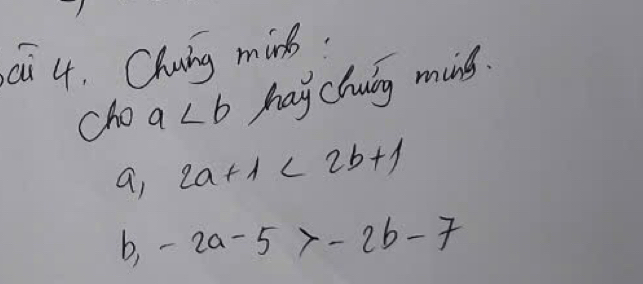 Bài 4. Chứng minh:
Cho a < b hãy chứng minh.
a, 2a + 1 < 2b + 1
b, - 2a - 5 > - 2b - 7